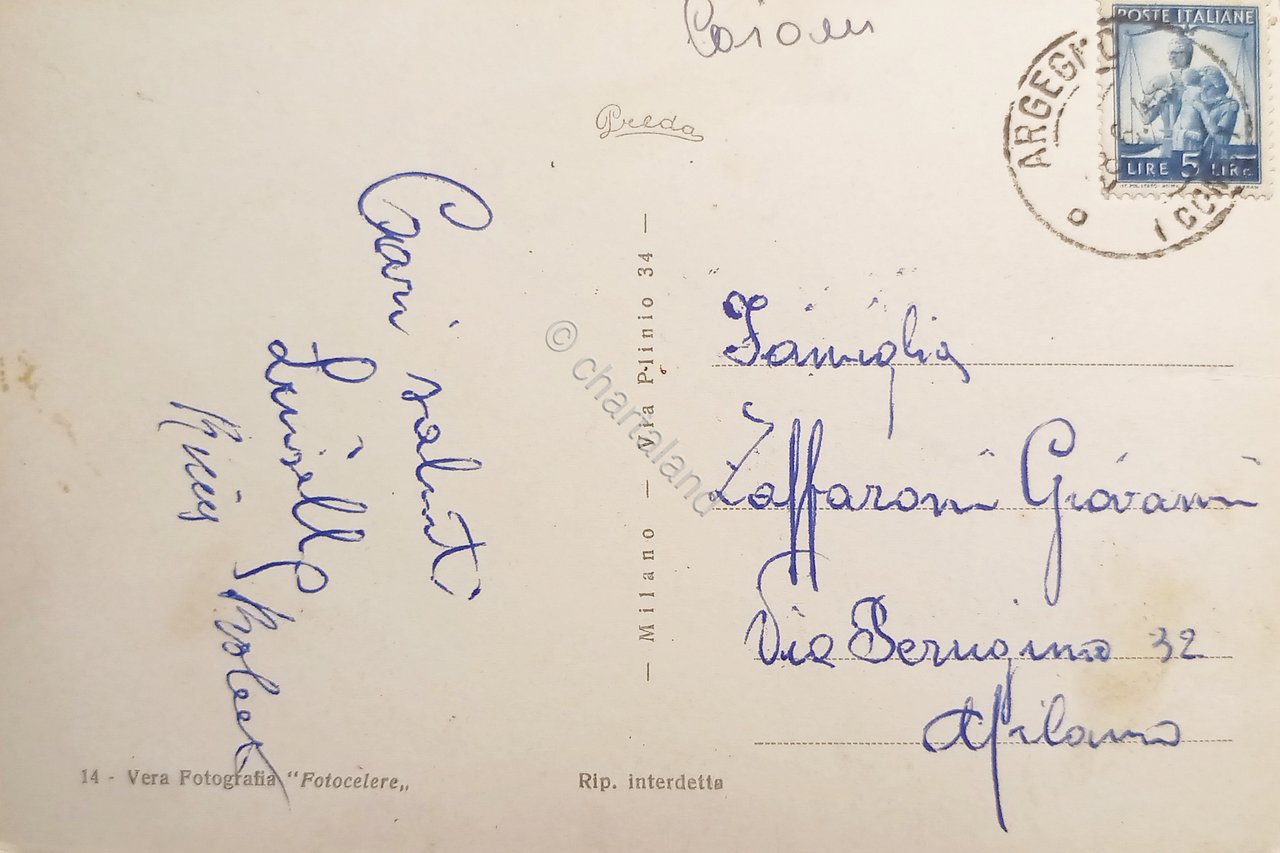 POSTE ITALIANE
LIRE 5 LIRE
ARGEGNO
(COMO
Breda
Cari saluti
Luisella
— Milano — Via Plinio 34 —
© chartaland
Famiglia
Zaffaroni Giovanni
Via Perugino 32
Milano
14 - Vera Fotografia "Fotocelere„
Rip. interdetta